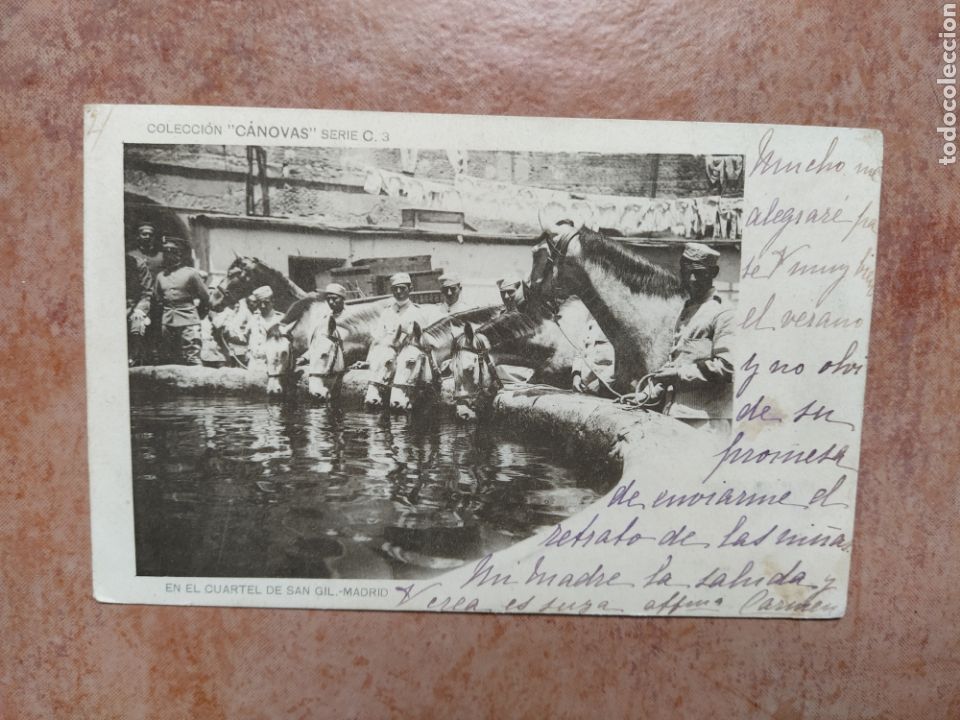 COLECCIÓN "CÁNOVAS" SERIE C. 3
Mucho me
alegraré pa
se V muy bien
el verano
y no olvi
de su
promesa
de enviarme el
retrato de las niñas.
Mi madre la saluda y
V crea es suya affma Carmen
EN EL CUARTEL DE SAN GIL.-MADRID
todocoleccion